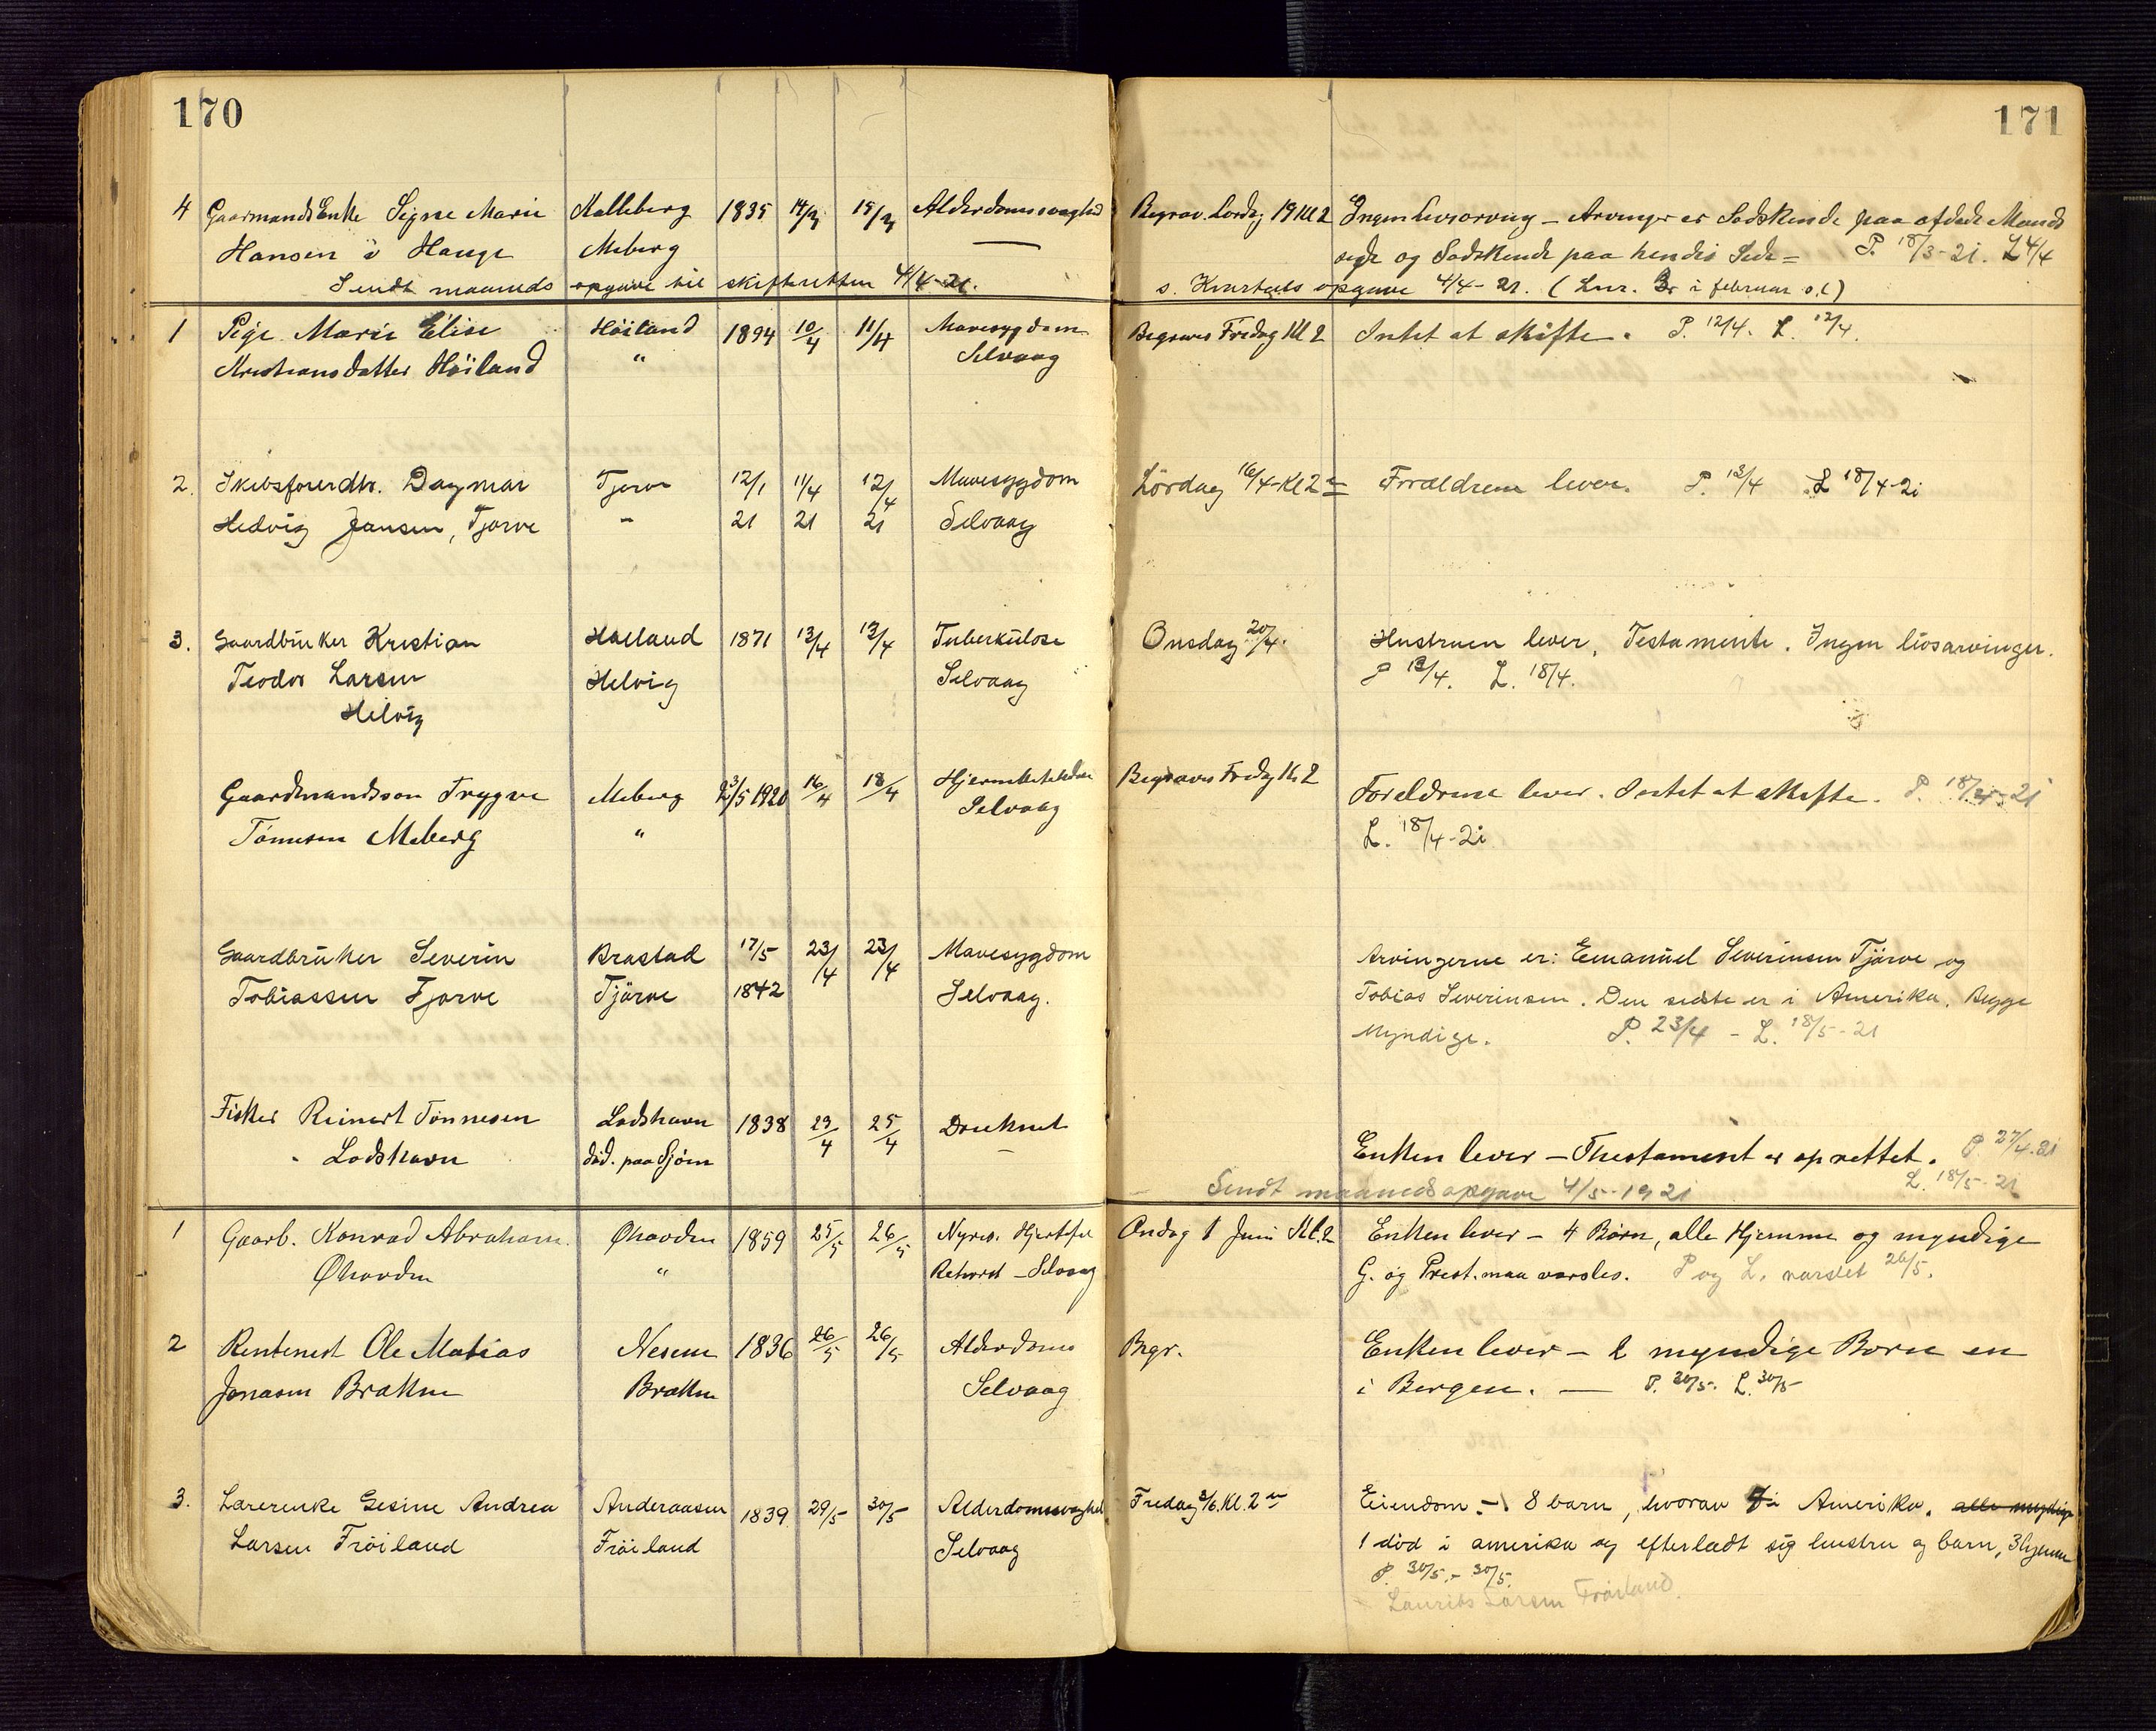 170
171
4 Gaarmands Enke Signe Marie Kalleberg 1835 14/3 15/3 Alderdomssvaghed Begrav. Lørdag 19 Kl 2 Ingen livsarving - Arvinger er Sødskende paa afdøde Mands
Hansen i Hauge Meberg side og Sødskende paa hendes Side = P. 18/3-21. L 4/4
Sendt maaneds opgave til skifteretten 4/4-21. s. Kvartals opgave 4/4-21. (Lnr. 3 i februar s.l)
1 Pige Marie Elise Höiland 1894 10/4 11/4 Mavesygdom Begraves Fredag Kl 2 Intet at skifte. P. 12/4. L. 12/4.
Kristiansdatter Höiland " Selvaag
2. Skibsförerdtr. Dagmar Tjørve 12/1 11/4 12/4 Mavesygdom Lördag 16/4-Kl 2 Forældrene lever. P. 13/4 L 18/4-21
Hedvig Jansen, Tjørve - 21 21 21 Selvaag
3. Gaardbruker Kristian Haaland 1871 13/4 13/4 Tuberkulose Onsdag 20/4. Hustruen lever, Testamente. Ingen livsarvinger.
Teodor Larsen Helvig Selvaag P 13/4. L. 18/4.
Helvig
Gaardmandsson Trygve Meberg 23/5 1920 16/4 18/4 Selvaag Begraves Fredag Kl 2 Foreldrene lever. Intet at skifte. P. 18/4-21
Tönnesen Meberg " L. 18/4-21
Gaardbruker Severin Brastad 17/5 23/4 23/4 Mavesygdom Arvingerne er: Emanuel Severinsen Tjörve og
Tobiassen Tjørve Tjörve 1842 Selvaag. Tobias Severinsen. Den sidste er i Amerika. Begge
Myndige. P. 23/4 - L. 18/5-21
Fisker Reinert Tönnesen Lodshavn 1838 23/4 25/4 Druknet Enken lever - Thestament er oprettet. P. 27/4.21
" Lodshavn död. paa Sjöen L. 18/5-21
Sendt maanedsopgave 4/5-1921
1 Gaarb. Konrad Abraham. Øhovden 1859 25/5 26/5 Nyres. Hjertefel Ondag 1 Juni Kl. 2 Enken lever - 4 Børn, alle Hjemme og myndige
Øhovden " Selvaag G. og Prest. maa varsles. P og L. varslet 26/5.
2 Rentenest Ole Matias Nesene 1836 26/5 26/5 Alderdoms Begr. Enken lever - 2 myndige Børn en
Jonasen Brakken Brakken Selvaag i Bergen. — P. 30/5. L. 30/5
3. Lærerenke Gesine Andrea Anderaasen 1839 29/5 30/5 Alderdomssvaghed Fredag 3/6. Kl. 2 Eiendom - 8 barn, hvorav i Amerika. alle myndige
Larsen Fröiland Fröiland Selvaag 1 död i amerika og efterladt sig hustru og barn, 3 hjemme
P. 30/5. - 30/5.
Laurits Larsen Fröiland